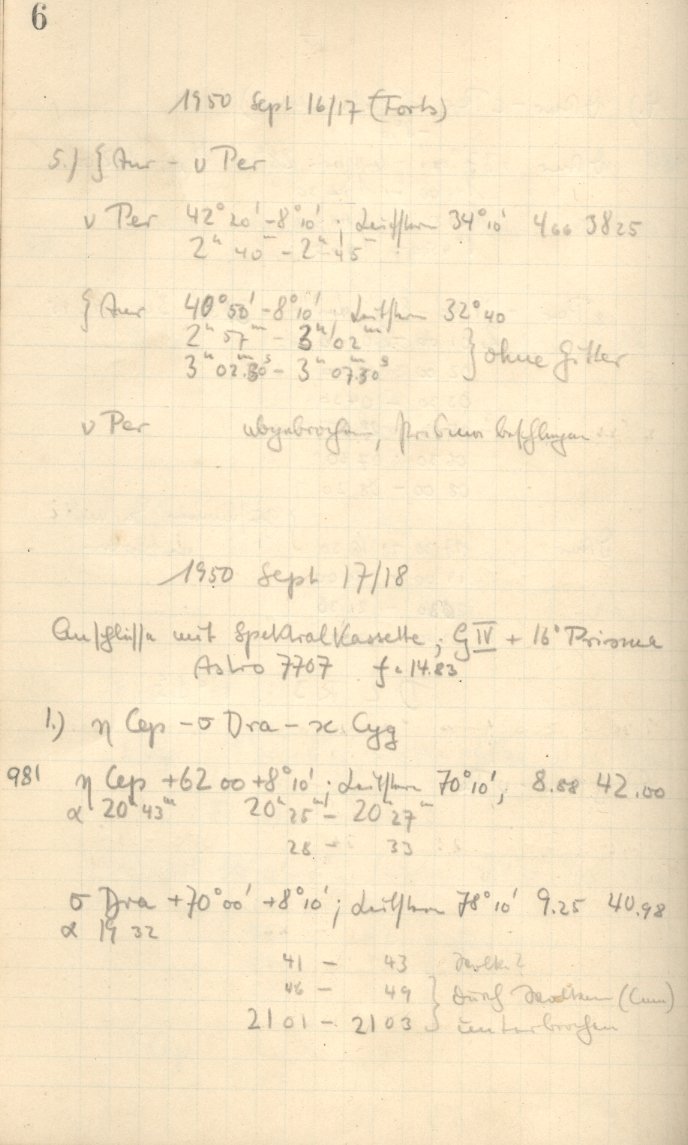 6
1950 Sept 16/17 (Forts)
5.) ζ Aur - ν Per
ν Per 42° 20' -8° 10' ; Leitstern 34° 10' 4.66 38.25
2ʰ 40ᵐ - 2ʰ 45ᵐ
ζ Aur 40° 50' -8° 10' Leitstern 32° 40
2ʰ 57ᵐ - 3ʰ 02ᵐ
3ʰ 02ᵐ.30ˢ - 3ʰ 07ᵐ.30ˢ } ohne Gitter
ν Per abgebrochen, Prisma beschlagen
1950 Sept 17/18
Anschlüsse mit Spektralkassette ; G IV + 16° Prisma
Astro 7707 f = 14.83
1.) η Cep - σ Dra - κ Cyg
981 η Cep +62 00 +8° 10' ; Leitstern 70° 10' , 8.88 42.00
α 20ʰ 43ᵐ 20ʰ 25ᵐ - 20ʰ 27ᵐ
28 - 33
σ Dra +70° 00' +8° 10' ; Leitstern 78° 10' 9.25 40.98
α 19 32
41 - 43 Wolke?
46 - 49 } durch Wolken (Cum)
21 01 - 21 03 } unterbrochen